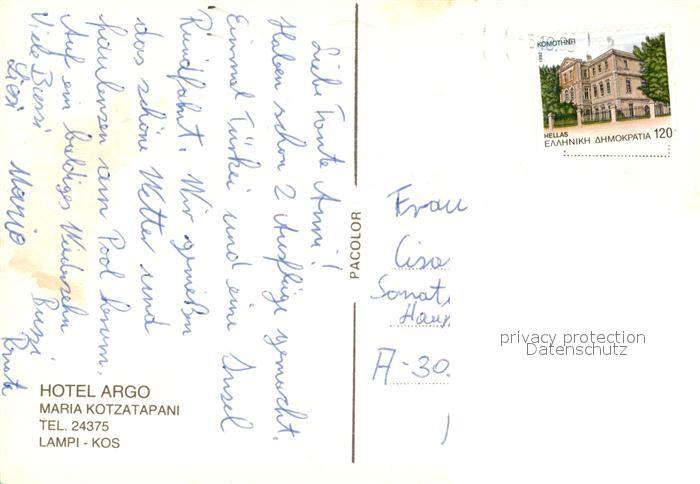 Liebe Tante Anni!
Haben schon 2 Ausflüge gemacht.
Einmal Türkei und eine Insel
Rundfahrt. Wir genießen
das schöne Wetter und
faulenzen am Pool herum.
Auf ein baldiges Wiedersehn
Viele Bussi Bussi
Liesi Mario
HOTEL ARGO
MARIA KOTZATAPANI
TEL. 24375
LAMPI - KOS
PACOLOR
ΚΟΜΟΤΗΝΗ
1992
HELLAS
ΕΛΛΗΝΙΚΗ ΔΗΜΟΚΡΑΤΙΑ 120
Frau
A-30
privacy protection
Datenschutz